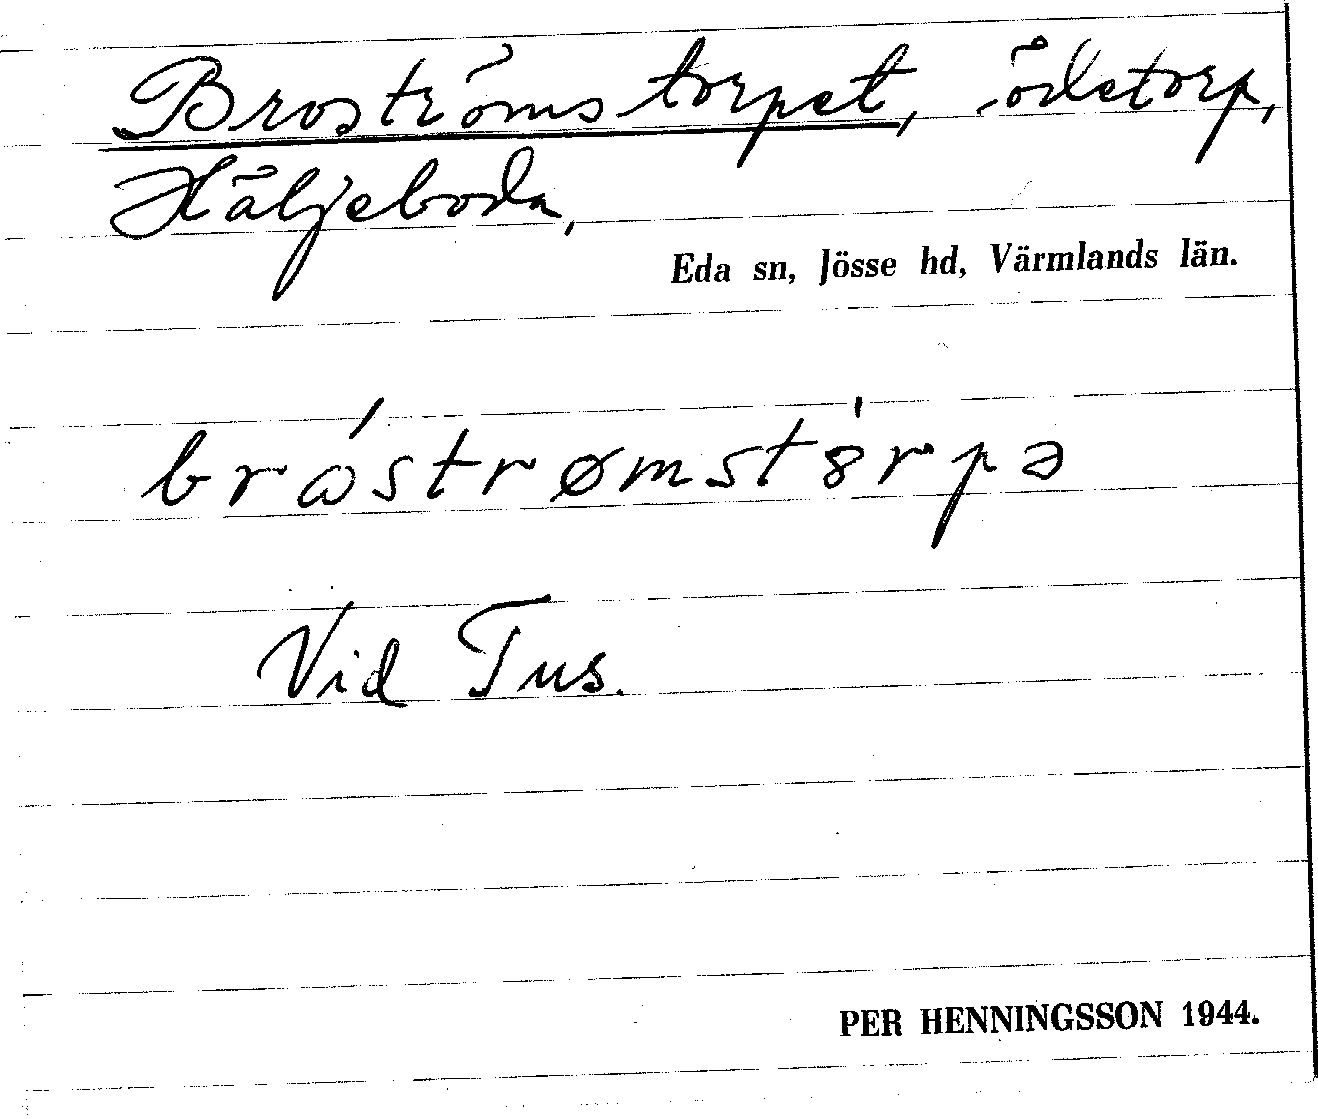 Broströmstorpet, ödetorp,
Häljeboda,
Eda sn, Jösse hd, Värmlands län.
Vid Tus.
PER HENNINGSSON 1944.